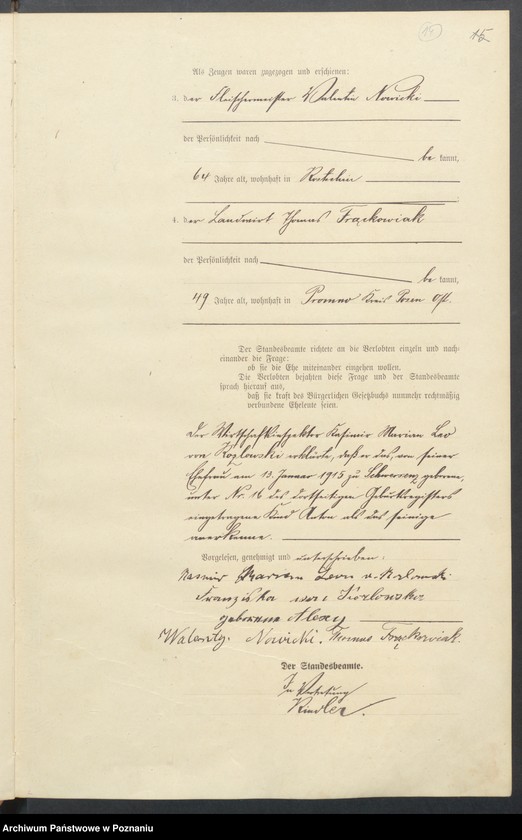 15
15
Als Zeugen waren zugezogen und erschienen:
3. der Fleischermeister Valentin Nowicki
der Persönlichkeit nach
be kannt,
64 Jahre alt, wohnhaft in Kostschin
;
4. der Landwirt Thomas Frąckowiak
der Persönlichkeit nach
be kannt,
49 Jahre alt, wohnhaft in Promno Kreis Posen Ost.
Der Standesbeamte richtete an die Verlobten einzeln und nach-
einander die Frage:
ob sie die Ehe miteinander eingehen wollen.
Die Verlobten bejahten diese Frage und der Standesbeamte
sprach hierauf aus,
daß sie kraft des Bürgerlichen Gesetzbuchs nunmehr rechtmäßig
verbundene Eheleute seien.
Der Wirtschaftsinspektor Kasimir Marian Leo
von Kozlowski erklärte, daß er das, von seiner
Ehefrau am 13. Januar 1915 zu Schwersenz geborene,
unter Nr. 16 des dortseitigen Geburtsregisters
eingetragene Kind Anton als das seinige
anerkenne.
Vorgelesen, genehmigt und unterschrieben:
Kasimir Marian Leon v.
Franziska von Kozlowska
geborene
Walenty Nowicki. Thomas Frąckowiak.
Der Standesbeamte.
In Vertretung
Kindler.
Archiwum Państwowe w Poznaniu